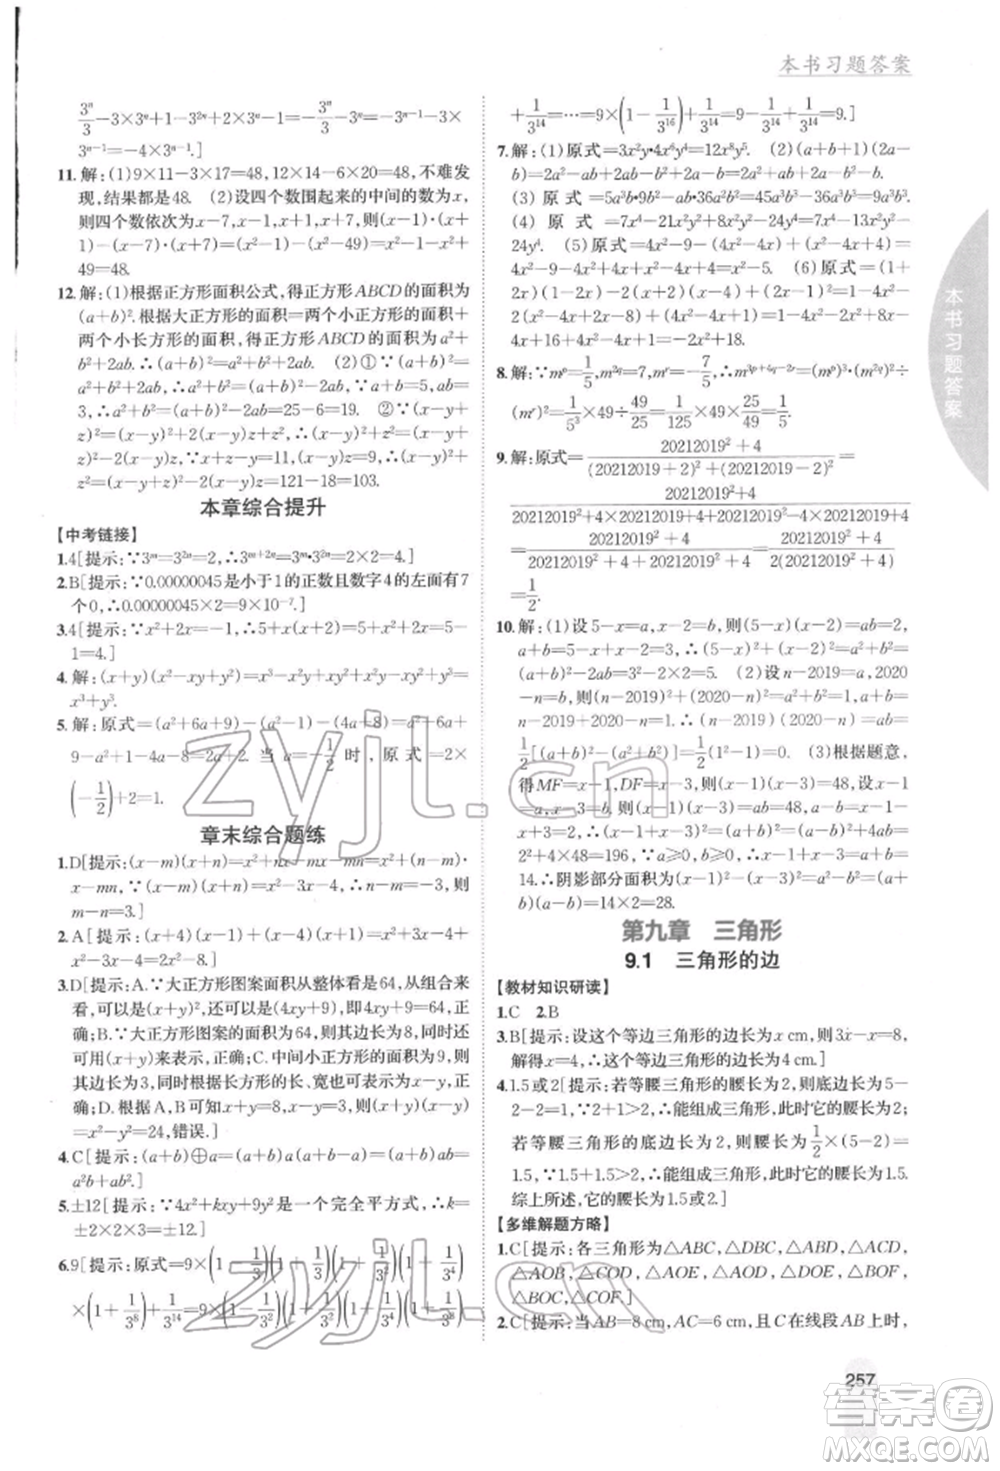 本书习题答案
3ⁿ/3−3×3ⁿ+1−3²ⁿ+3×3ⁿ−1+3²ⁿ=3ⁿ⁻¹−
3ⁿ⁻¹=−4×3ⁿ⁻¹.]
11.解:(1)9×11−3×17=48,12×14−6×20=48,不难发
现,结果都是48. (2)设四个数围起来的中间的数为x,
则四个数依次为x−7,x−1,x+1,x+7,则(x−1)(x+
1)−(x−7)(x+7)=x²−1²−(x²−7²)=x²−1−x²+
49=48.
12.解:(1)根据正方形面积公式,得正方形ABCD的面积=
(a+b)².根据大正方形的面积=两个小正方形的面积+
两个小长方形的面积,得正方形ABCD的面积为a²+
b²+2ab.∴(a+b)²=a²+b²+2ab. (2)①∵(a+
b)²=a²+b²+2ab,a+b=5,ab=3,∴a²+b²=(a+
b)²−2ab=5²−2×3=25−6=19. ②∵(x−y)²+
z²=[(x−y)+z]²−2(x−y)z,x+z−y=11,(x−y)z=
9,∴(x−y)²+z²=[(x−y)+z]²−2(x−y)z=11²−
2×9=121−18=103.
本章综合提升
【中考链接】
1.4[提示:∵3ᵐ=3²ⁿ=2,∴3ᵐ⁺²ⁿ=3ᵐ•3²ⁿ=2×2=4.]
2.B[提示:∵0.00000045是小于1的正数且数字4的左面有7
个0,∴0.00000045×2=9×10⁻⁷.]
3.4[提示:∵x²+2x=−1,∴5+x(x+2)=5+x²+2x=5−
1=4.]
4.解:(x+y)(x²−xy+y²)=x³−x²y+xy²+x²y−xy²+y³=
x³+y³.
5.解:原式=(a²+6a+9)−(a²−1)−(4a+8)=a²+6a+
9−a²+1−4a−8=2a+2. 当 a=−1/2 时,原式=2×
(−1/2)+2=1.
章末综合题练
1.D[提示:(x−m)(x+n)=x²+nx−mx−mn=x²+(n−m)
x−mn,∵(x−m)(x+n)=x²−3x−4,∴n−m=−3,则
m−n=3.]
2.A[提示:(x+4)(x−2)=x²−2x+4x−8=x²+
2x−8=x²−3x+5x−8.]
3.D[提示:A.∵大正方形图案面积从整体看,是64,从组合来
看,可以是(x+y)²,还可以是(4xy+9),∴4xy+9=64,正
确;B.∵大正方形图案的面积为64,则其边长为8,∴x+y=8,正确;C.中间小正方形的面积为9,则
其边长为3,同时根据长方形的长、宽也可以表示为x−y,正
确;D.根据A、B可知x+y=8,x−y=3,则(x+y)(x−y)
=x²−y²=24,错误.]
4.C[提示:(a+b)⊕a=(a+b)²−(a+b)a=a²+2ab+b²−
a²−ab=b²+ab.]
5.±12[提示:∵4x²+kxy+9y²=一个完全平方式,∴k=
±2×2×3=±12.]
6.9[提示:原式=9×(1−1/3)(1+1/3)(1+1/3²)(1+1/3⁴)
×(1+1/3⁸)+1/3¹⁴=9×(1−1/3²)(1+1/3²)(1+1/3⁴)(1+1/3⁸)
+1/3¹⁴=⋯=9×(1−1/3¹⁶)+1/3¹⁴=9−1/3¹⁴+1/3¹⁴=9.]
7.解:(1)原式=3x²y•4x⁴y⁴=12x⁶y⁵. (2)(a+b)(2a−
b)=2a²−ab+2ab−b²=2a²+ab−b².
(3)原式=5a³b•9b²−6a²b²•ab=45a³b³−6a³b³=39a³b³.
(4)原式=7x⁴−4x²y²+42x²y²−24y⁴=7x⁴+38x²y²−
24y⁴. (5)原式=4x²−9−(4x²−4x+x−1)=4x²−
9−4x²+4x−x+1=3x−8. (6)原式=[(x−1)(x+
1)+2x(x−4)]=4x²−7x−2x²+8x=
2x²+x+18.
8.解:∵mᵖ=1/5,m²𐞥=7,mʳ=−7/5,∴m³ᵖ⁺⁴𐞥⁻²ʳ=(mᵖ)³•(m²𐞥)²÷
(mʳ)²=1/5³×49÷49/25=1/125×49×25/49=1/5.
9.解:原式=(20212019²+4)/((20212019+2)²+(20212019−2)²)=
(20212019²+4)/(20212019²+4×20212019+4+20212019²−4×20212019+4)
=(20212019²+4)/(20212019²+4+20212019²+4)=(20212019²+4)/(2(20212019²+4))
=1/2.
10.解:(1)设5−x=a,x−2=b,则(5−x)(x−2)=ab=2,
a+b=5−x+x−2=3,∴(5−x)²+(x−2)²=a²+b²=
(a+b)²−2ab=3²−2×2=5. (2)设n−2019=a,2020
−n=b,则(n−2019)²+(2020−n)²=a²+b²=1,a+b=
n−2019+2020−n=1,∴(n−2019)(2020−n)=ab=
1/2[(a+b)²−(a²+b²)]=1/2×(1²−1)=0. (3)根据题意,
得MF=x−1,DF=x−3,则(x−1)(x−3)=48,(x−1)−
(x−3)=2.设x−1=a,x−3=b,则(x−1)(x−3)=ab=48,a−b=(x−1)−(x−3)=2,
∴(a+b)²=(a−b)²+4ab=2²+
4×48=4+192=196,∵a>0,b>0,∴a+b>0,∴a+b=
14.∴阴影部分面积为(x−1)²−(x−3)²=a²−b²=(a+
b)(a−b)=14×2=28.
第九章 三角形
9.1 三角形的边
【教材知识研读】
1.C 2.B
3.B[提示:设这个等边三角形的边长为x cm,则3x−x=8,
解得x=4,∴这个等边三角形的边长为4 cm.]
4.1.5或2[提示:若等腰三角形的底边长为1,则底边长为5−
2×2=1,∵1+2>2,∴能组成三角形,此时它的腰长为2;
若等腰三角形的底边长为2,则腰长为1/2×(5−2)=
1.5,∵1.5+1.5>2,∴能组成三角形,此时它的腰长为1.5.
综上所述,它的腰长为1.5或2.]
【多维解题方略】
1.C[提示:各三角形为△ABC,△ABD,△ACD,
△AOB,△COD,△AOE,△DOE,△BOF,
△BOC,△COF.]
2.C[提示:当AB=8cm,AC=6cm,且C在线段AB上时,
本书习题答案
257
zyjl.cn
zyjl.cn
答案圈
MXQE.COM